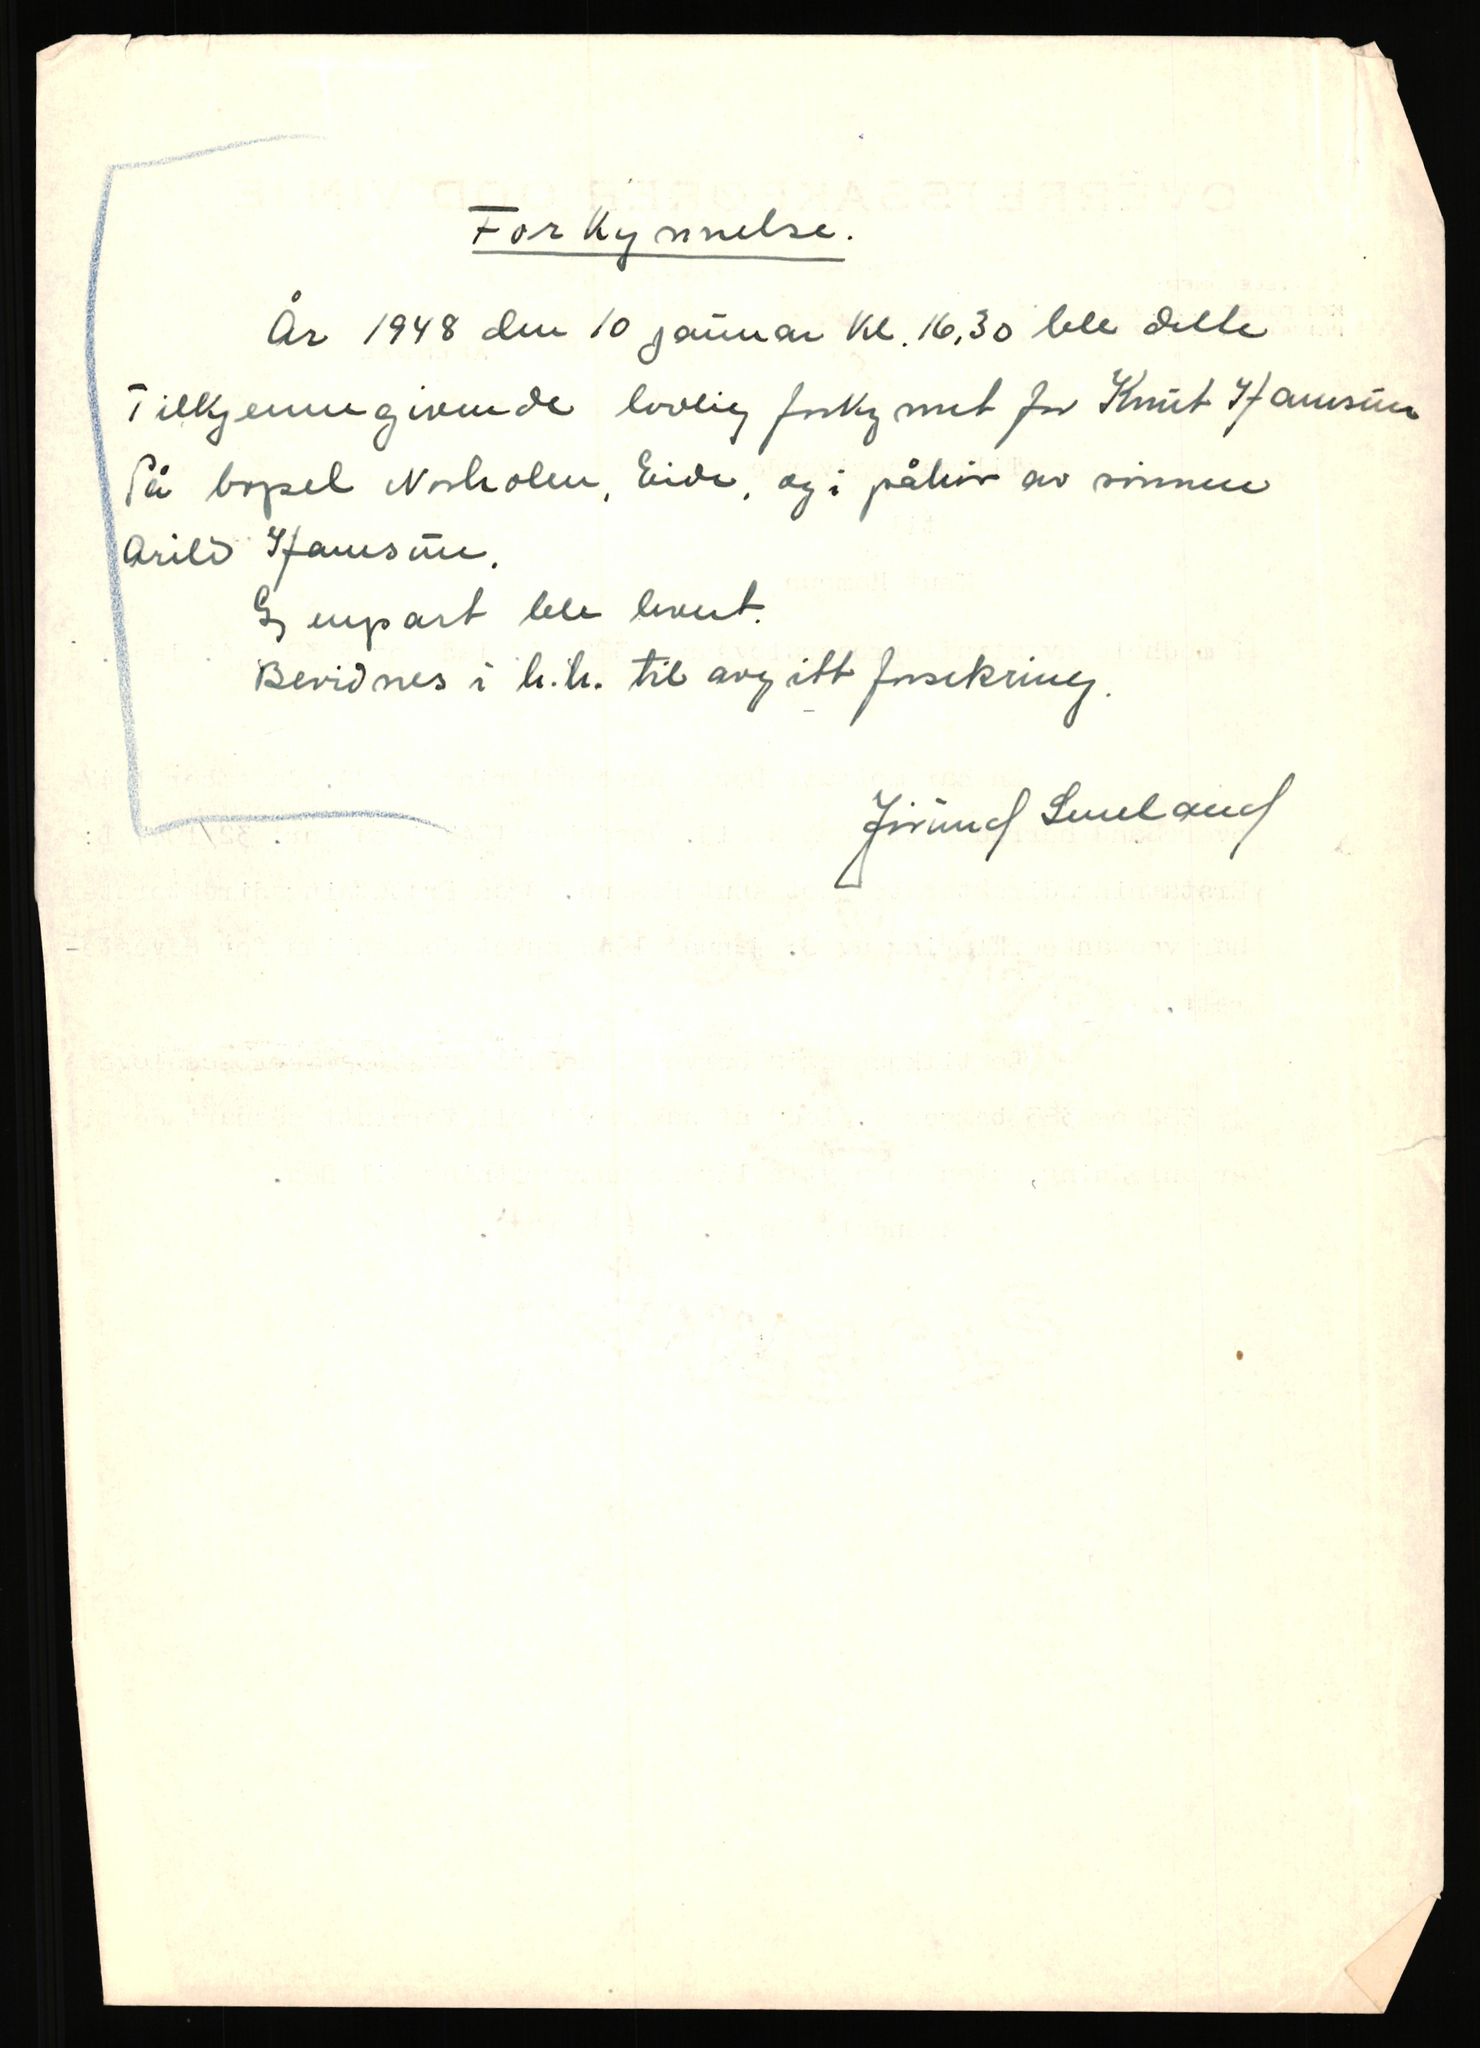 Forkynnelse.
År 1948 den 10 januar kl. 16,30 ble dette
Tilkjennegivende lovlig forkynnet for Knut Hamsun
På bopel Nørholm, Eide, og i påhør av sønnen
Arild Hamsun.
Gjenpart ble levert.
Bevidnes i h.h. til avgitt forsikring.
Smeland